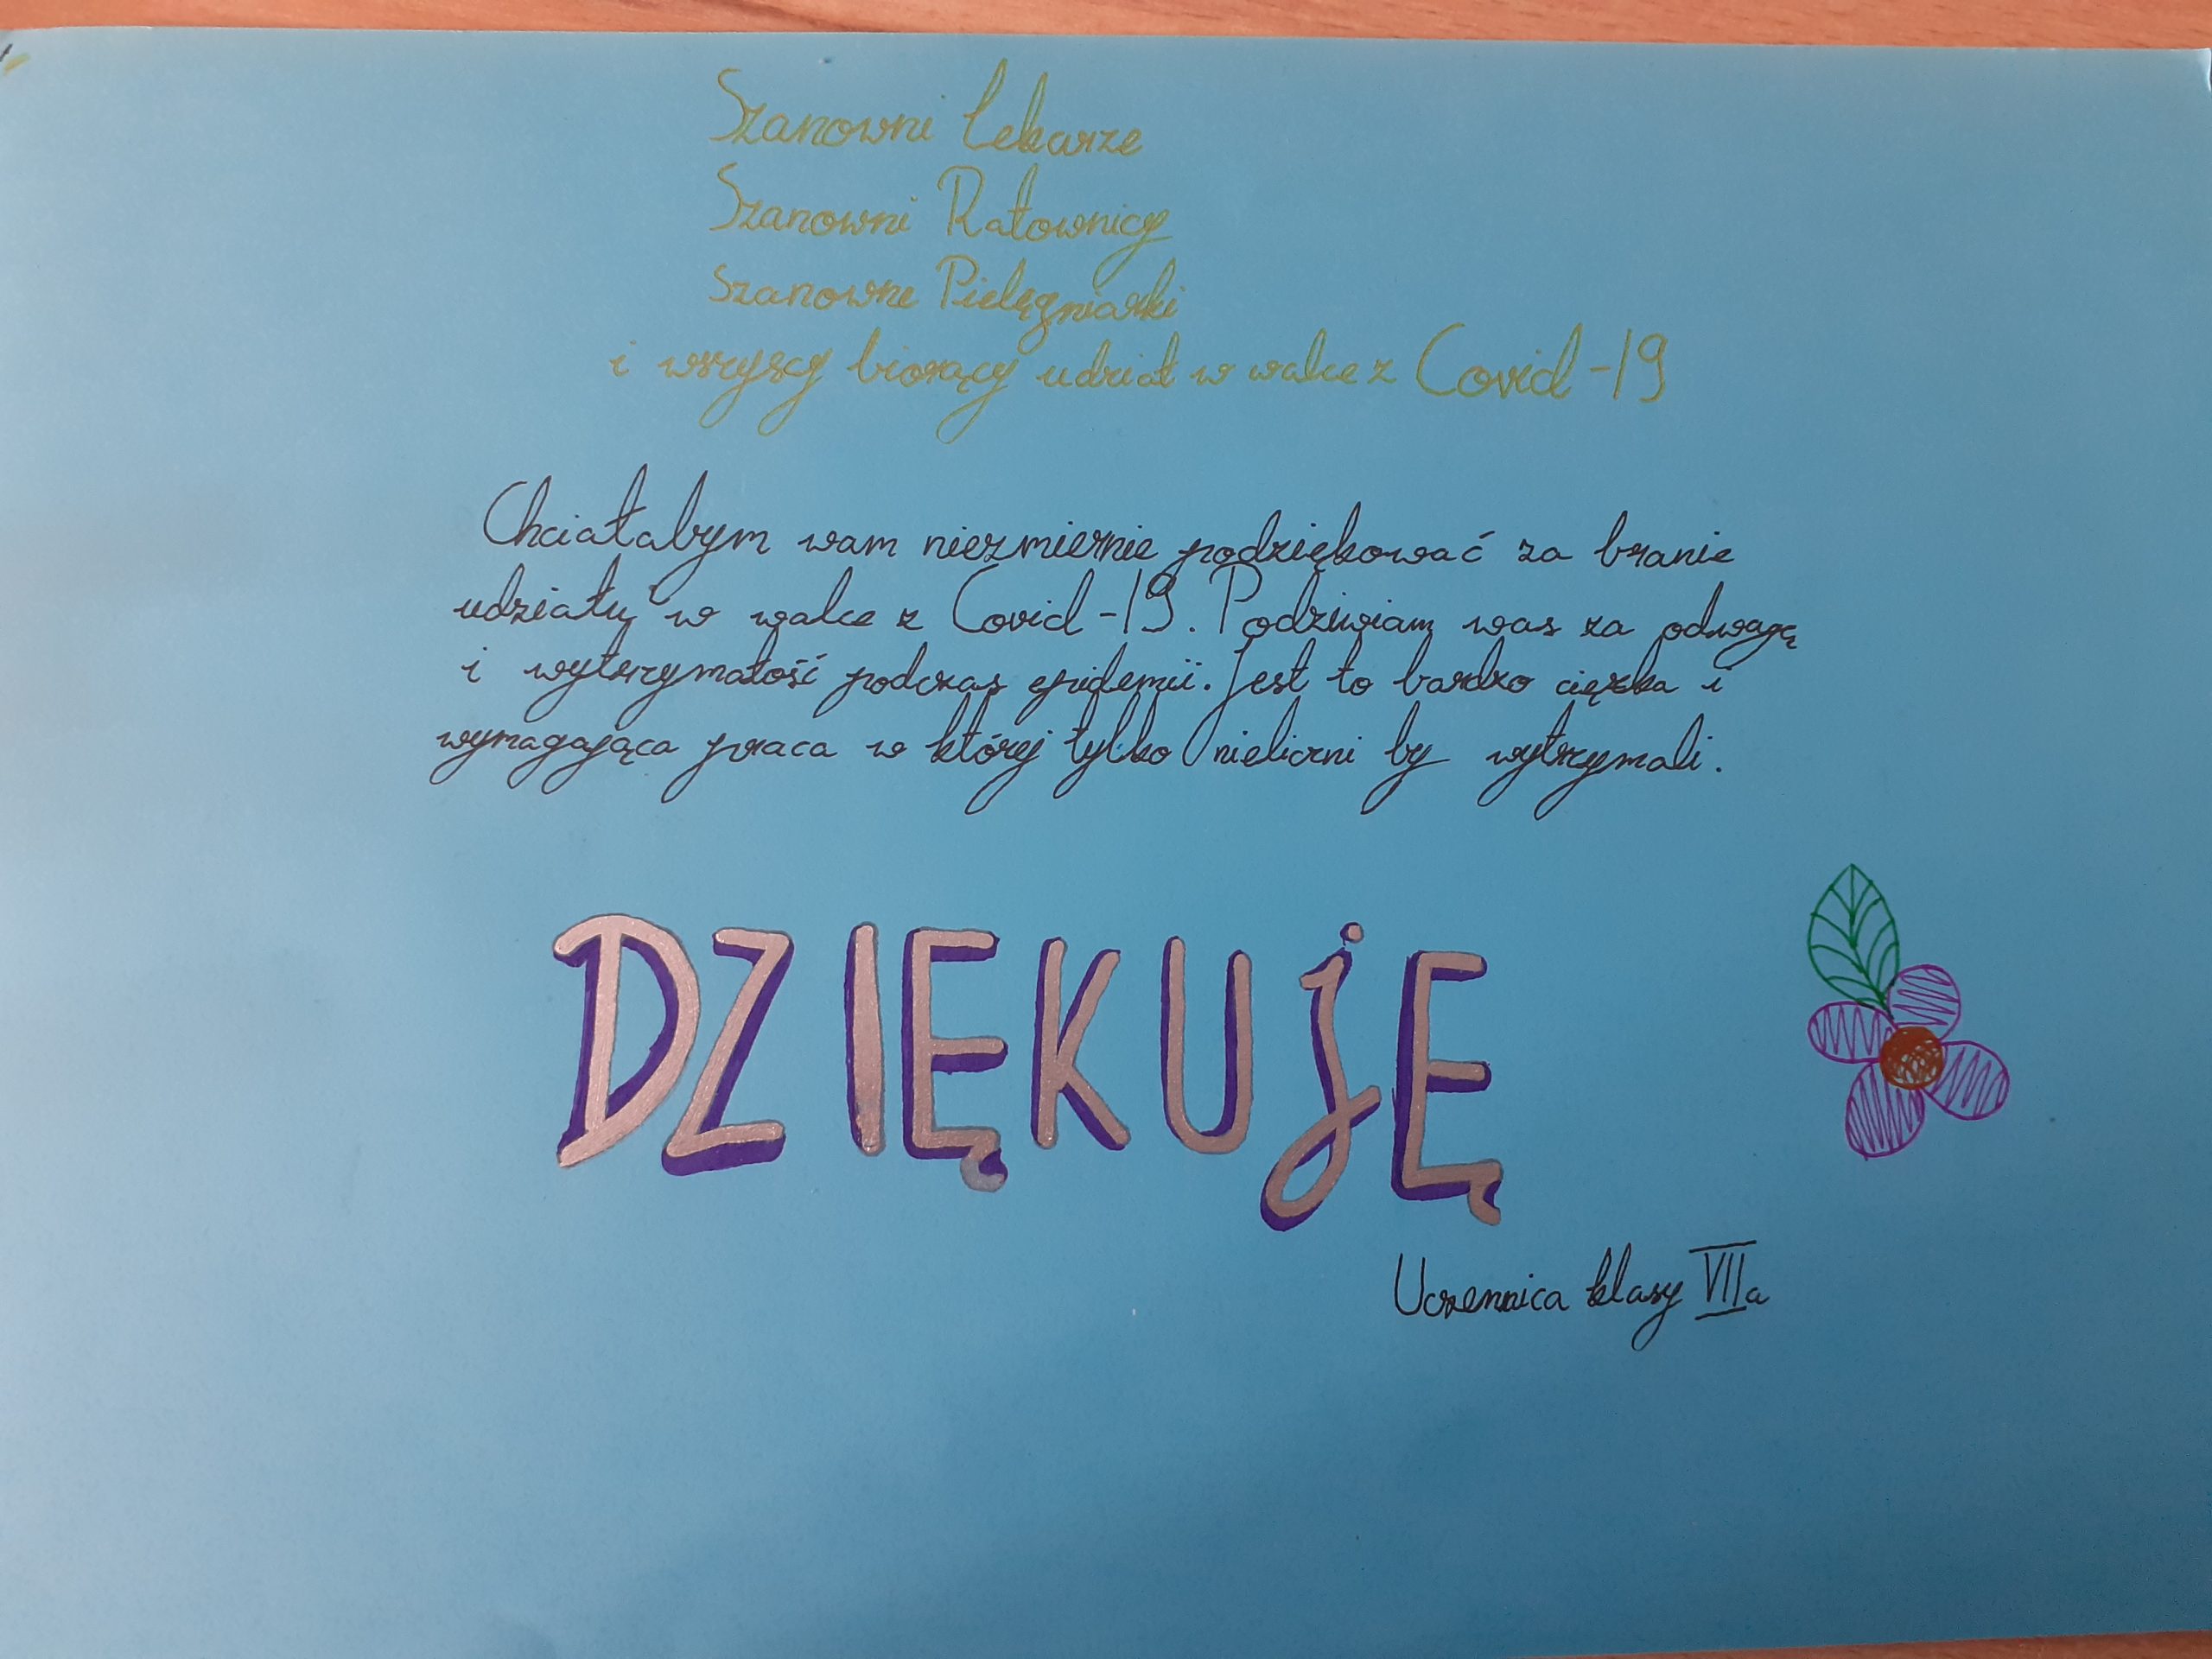 Szanowni Lekarze
Szanowni Ratownicy
Szanowne Pielęgniarki
i wszyscy biorący udział w walce z Covid-19
Chciałabym wam niezmiernie podziękować za branie
udziału w walce z Covid-19. Podziwiam was za odwagę
i wytrzymałość podczas epidemii. Jest to bardzo ciężka i
wymagająca praca w której tylko nieliczni by wytrzymali.
DZIĘKUJĘ
Uczennica klasy VIIa